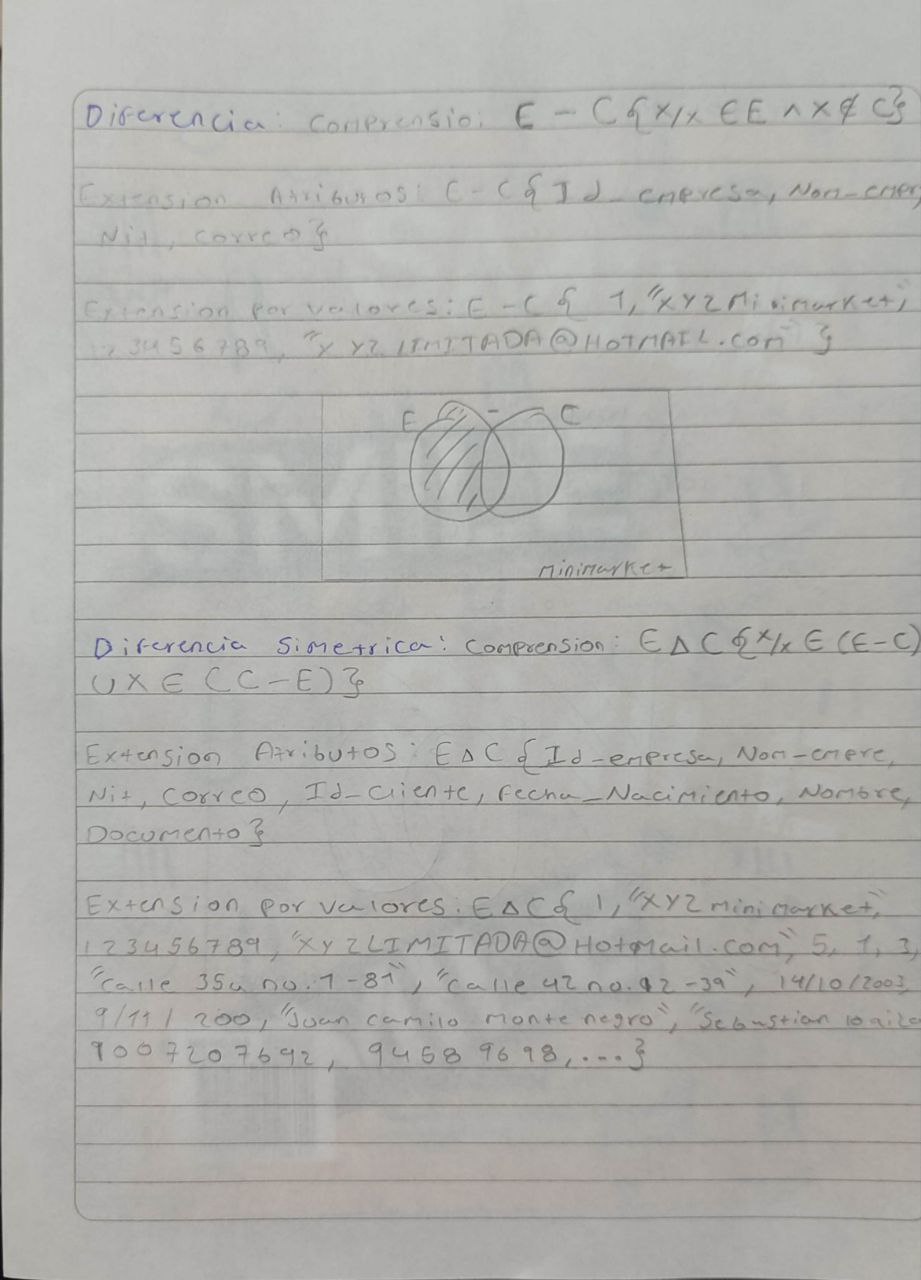 Diferencia: Comprensio: E - C{x/x ∈ E ∧ x ∉ C}
Extension Atributos: E - C{Id_empresa, Nom-empr,
Nit, correo}
Extension por valores: E - C{ 1, "XYZ Minimarket,
123456789, "XYZ LIMITADA@HOTMAIL.com" }
E - C
minimarket
Diferencia Simetrica: Comprension: E Δ C {x/x ∈ (E-C)
U X ∈ (C-E)}
Extension Atributos: E Δ C {Id-empresa, Nom-empre,
Nit, correo, Id-cliente, Fecha_Nacimiento, Nombre,
Documento}
Extension por valores: E Δ C{ 1, "XYZ minimarket,"
123456789, "XYZLIMITADA@Hotmail.com", 5, 1, 3,
"calle 35a no. 1-81", "calle 42 no. 92-39", 14/10/2003,
9/11/200, "Juan camilo montenegro", "Sebastian
9007207692, 94589698, ...}